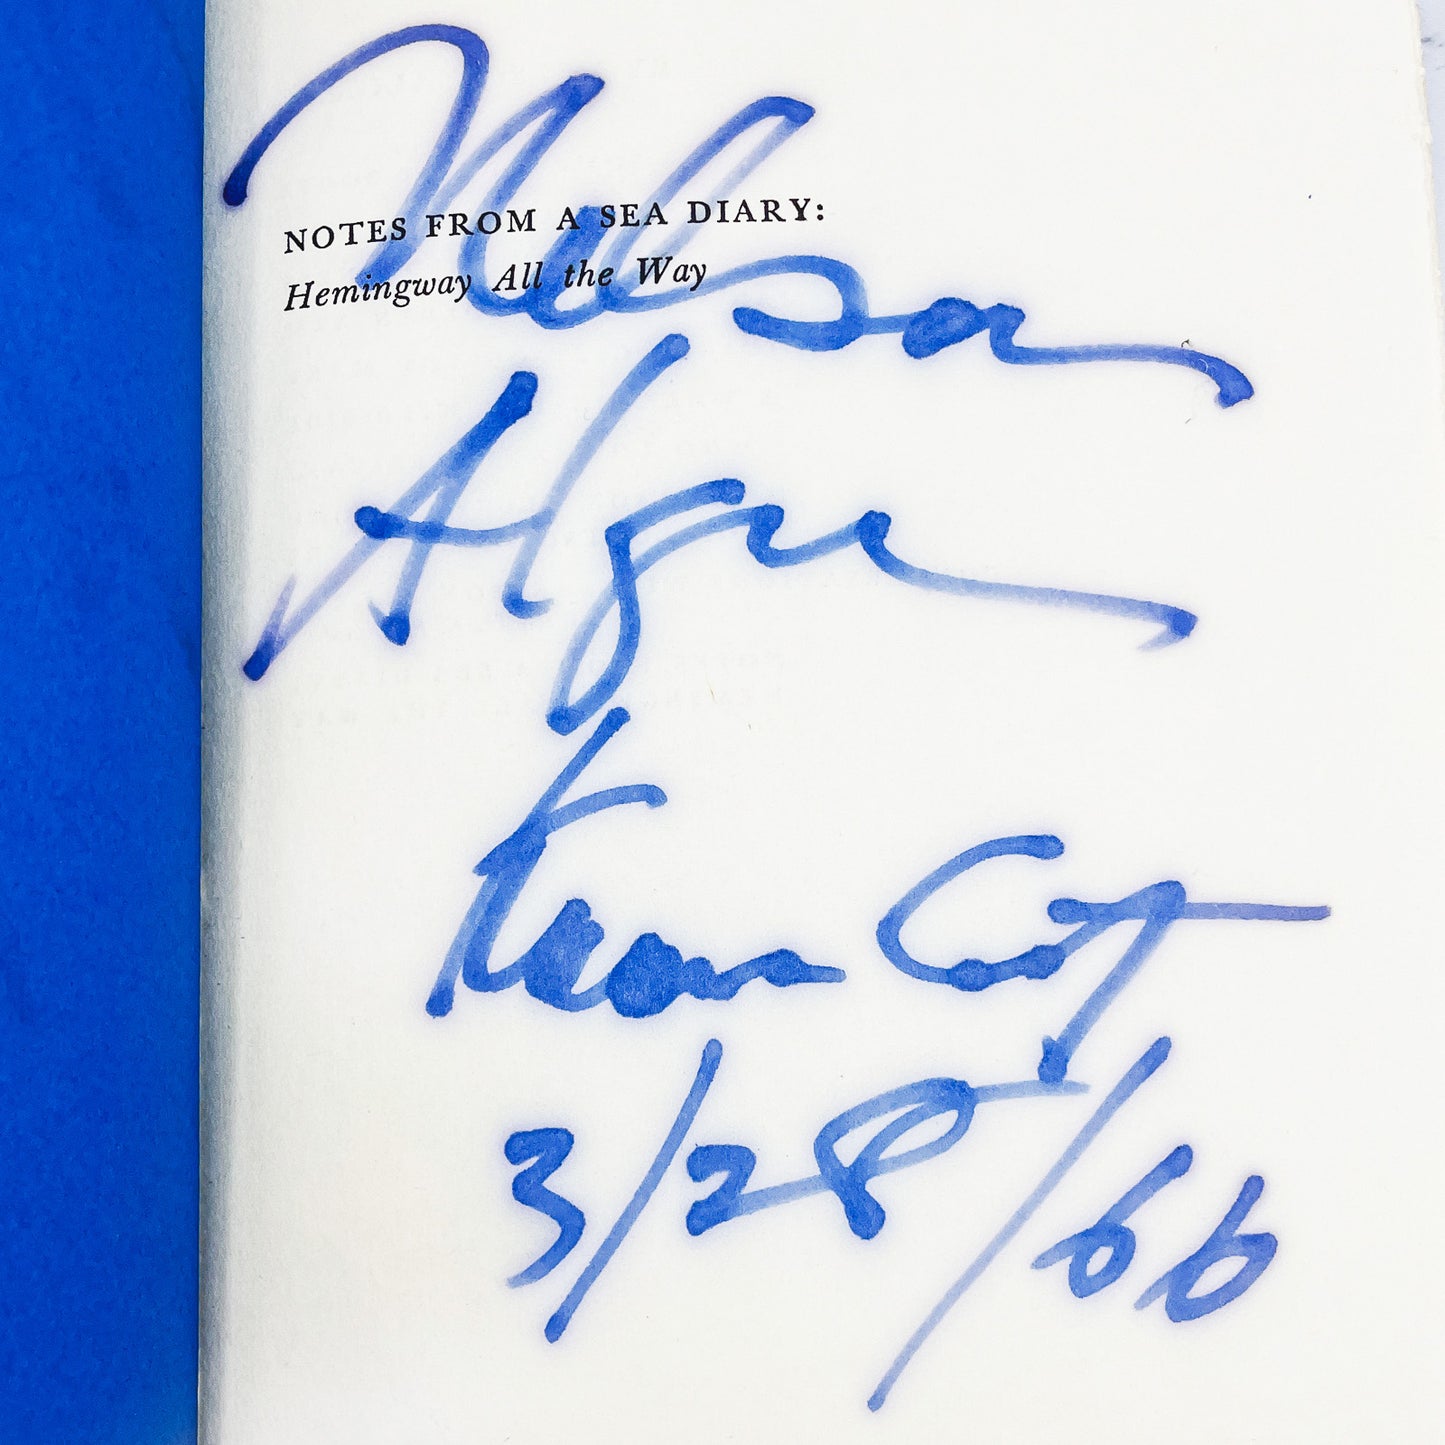 Nelson
NOTES FROM A SEA DIARY:
Hemingway All the Way
Algren
City
3/28/66